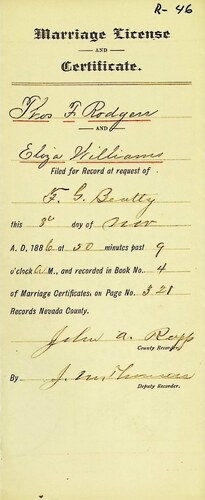 R- 46
Marriage License
AND
Certificate.
Thos F. Rodgers
AND
Eliza Williams
Filed for Record at request of
F. G. Beatty
this 3d day of Nov
A. D, 1886 at 30 minutes past 9
o'clock A M., and recorded in Book No. 4
of Marriage Certificates, on Page No. 321
Records Nevada County.
John A. Rapp
County Recorder.
By J. M. Thomas
Deputy Recorder.